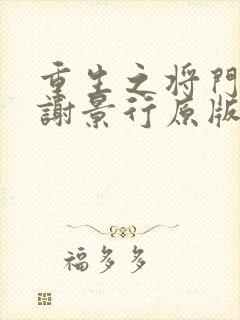 重生之将门
謝景行原版
福多多